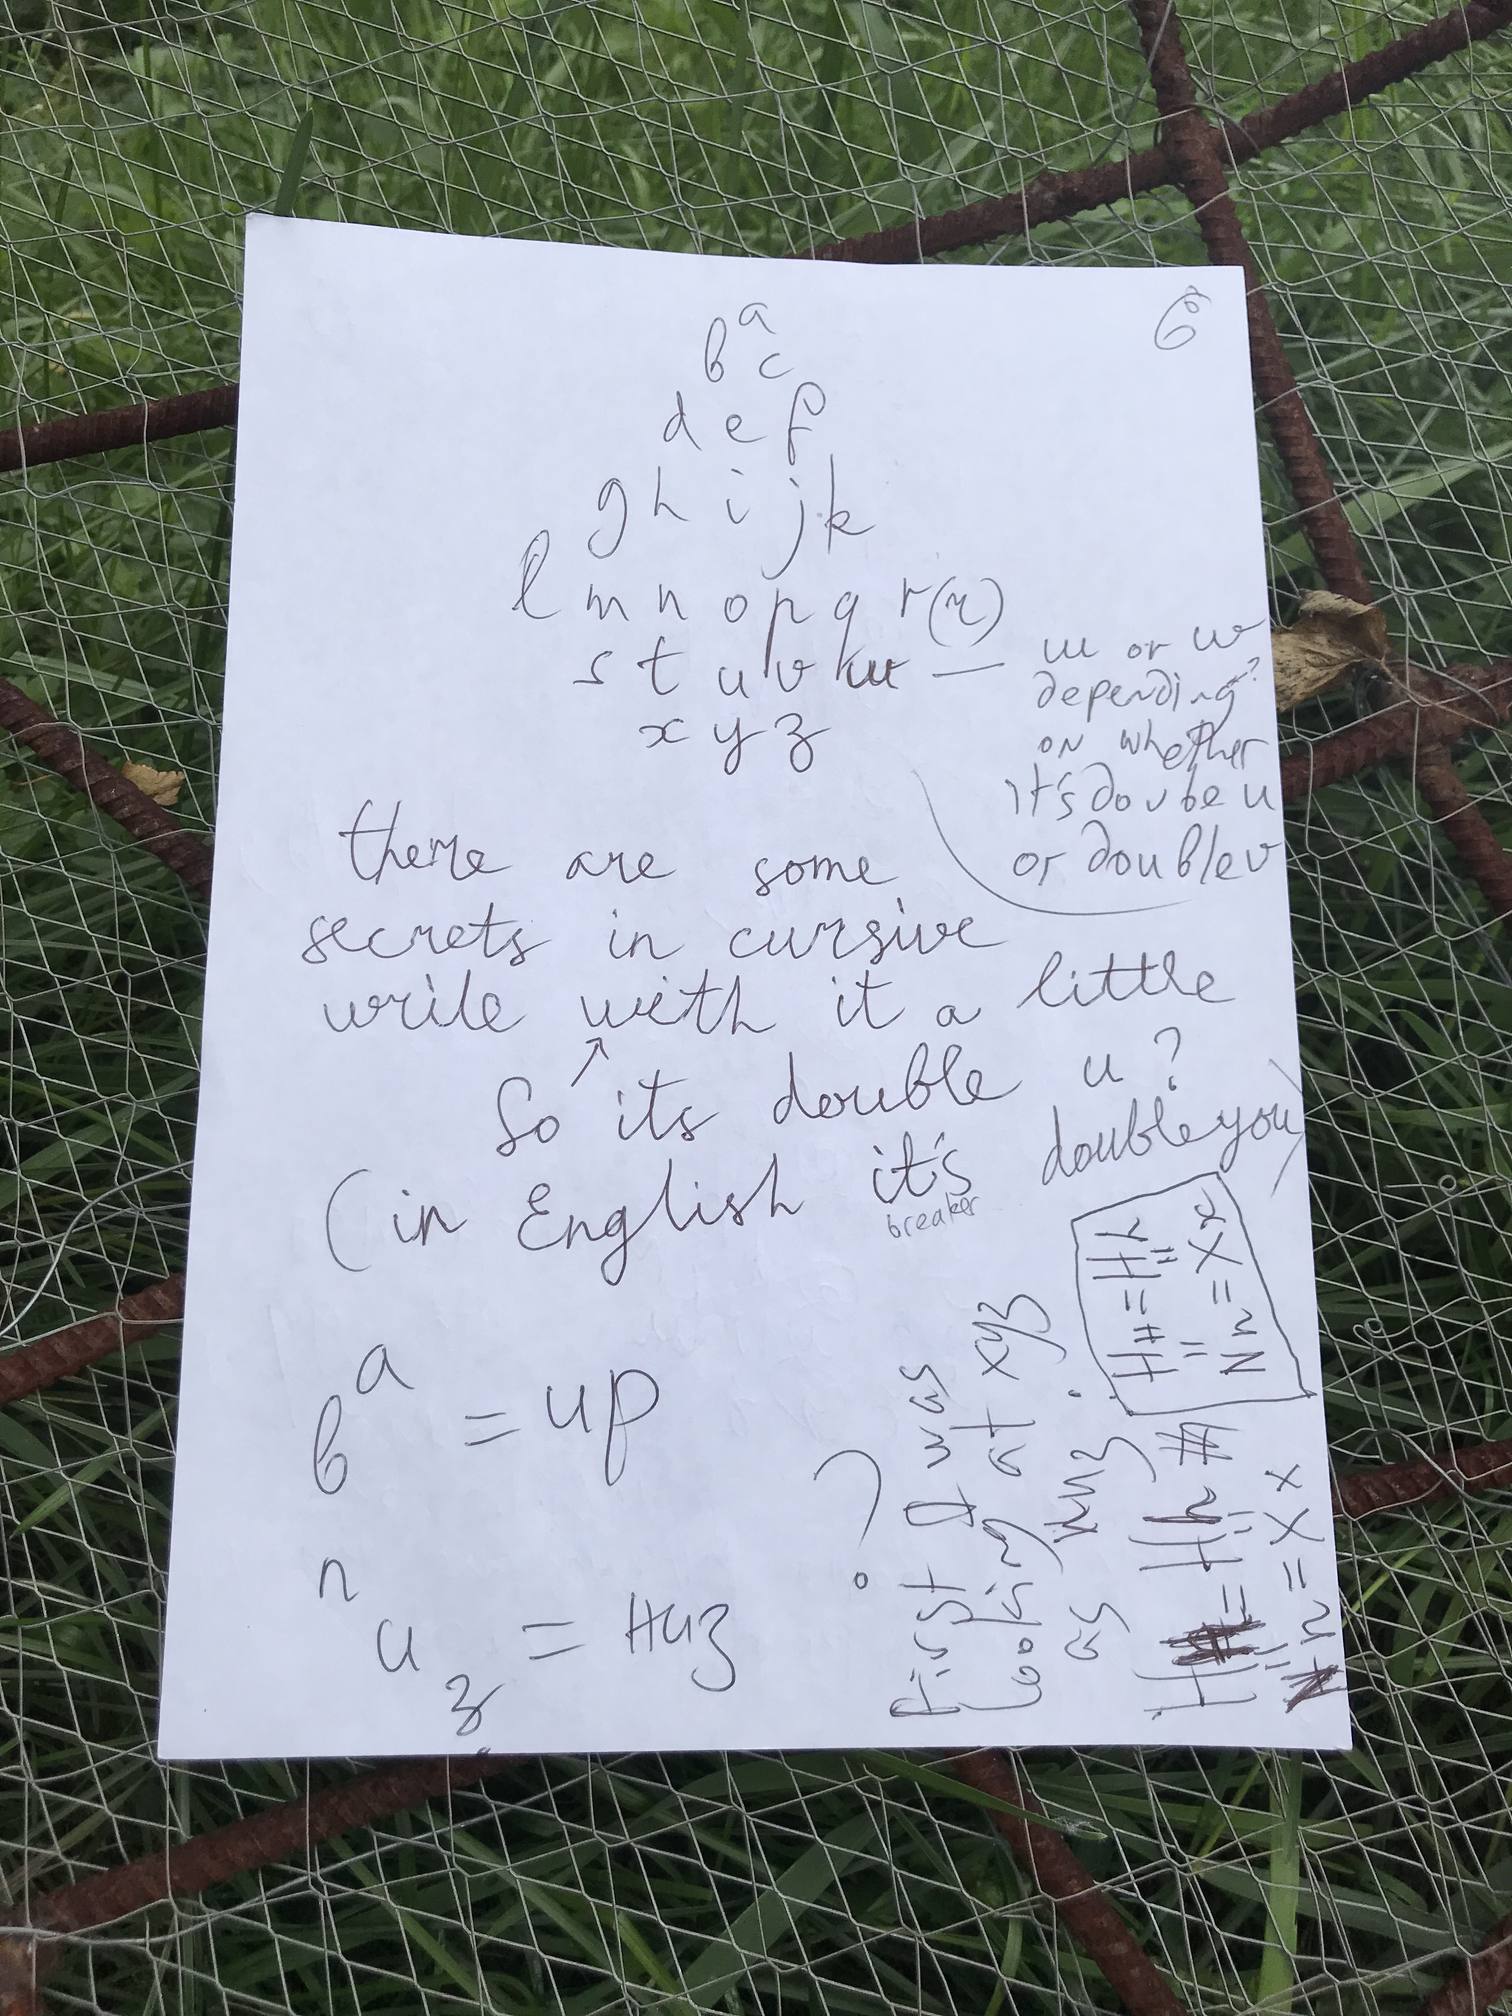 6
a
b c
d e f
g h i j k
l m n o p q r (r)
s t u v w — w or w
depending?
on whether
it's doube u
or double v
x y z
there are some
secrets in cursive
write with it a little
So its double u?
(in English it's double you)
breaker
b a = up
n u z = низ
?
First I was
looking at xyz
as xyz.
Нн = Hh
Nn = Xx
Hh
= X x